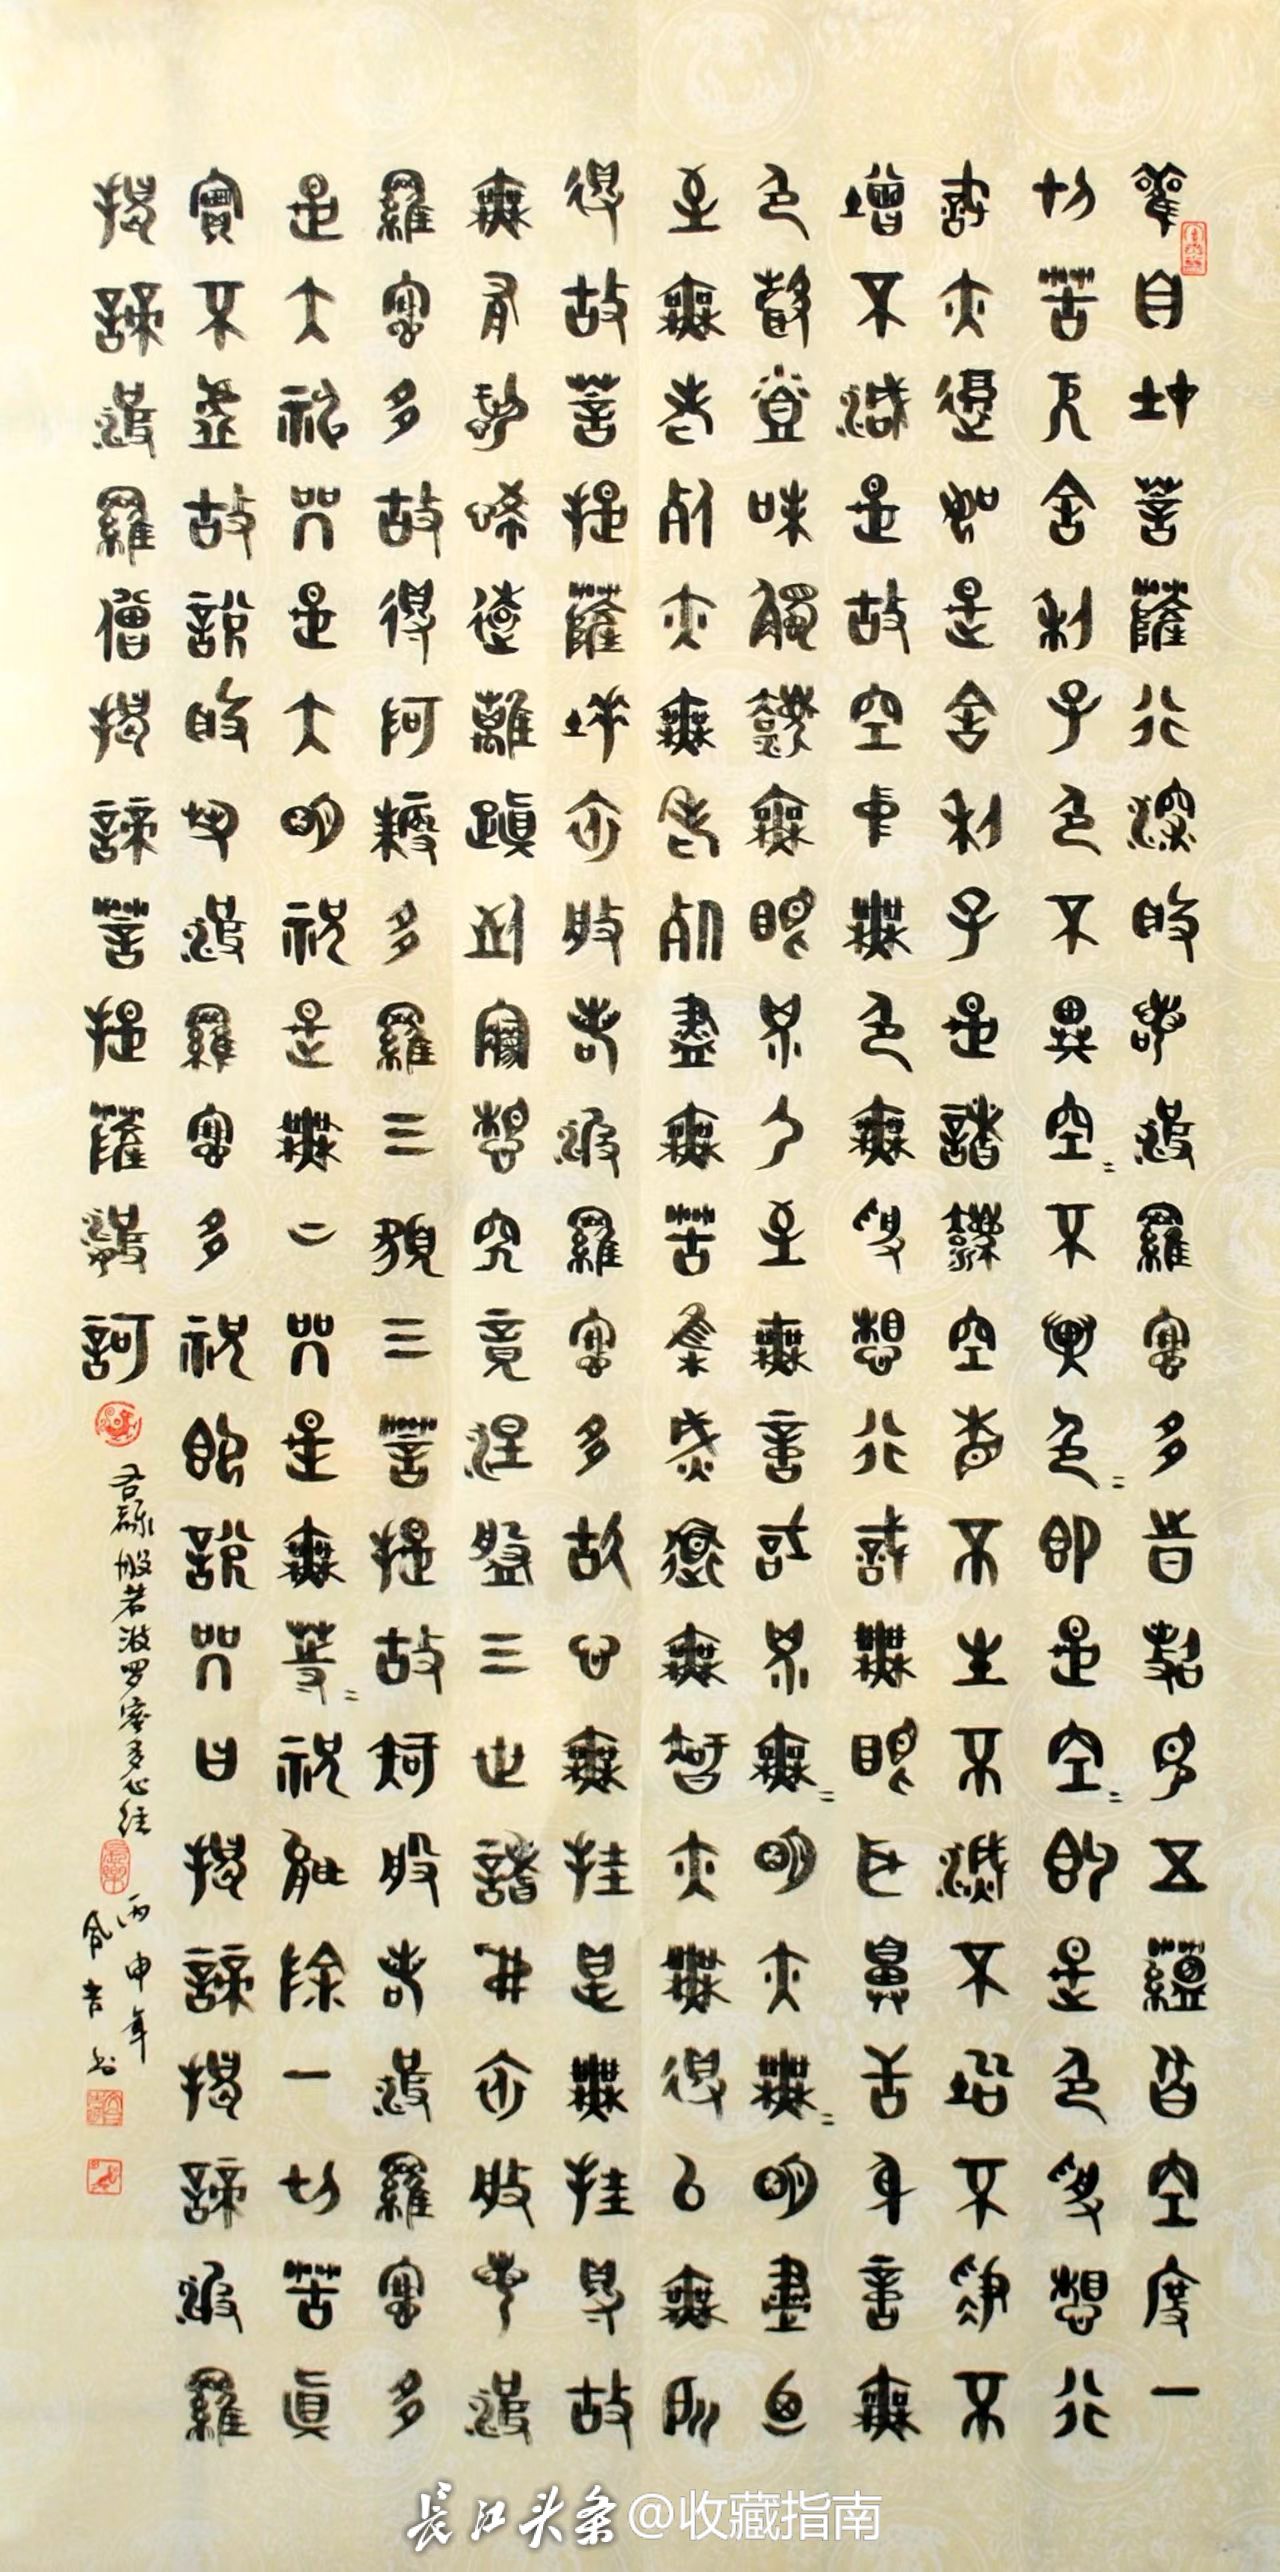 觀自在菩薩行深般若波羅蜜多時照見五蘊皆空度一
切苦厄舍利子色不異空=不異色=即是空=即是色受想行
識亦復如是舍利子是諸法空相不生不滅不垢不淨不
增不減是故空中無色無受想行識無眼耳鼻舌身意無
色聲香味觸法無眼界乃至無意識界無=明亦無=明盡乃
至無老死亦無老死盡無苦集滅道無智亦無得以無所
得故菩提薩埵依般若波羅蜜多故心無罣礙無罣礙故
無有恐怖遠離顛倒夢想究竟涅槃三世諸佛依般若波
羅蜜多故得阿耨多羅三藐三菩提故知般若波羅蜜多
是大神咒是大明祝是無上咒是無等=祝能除一切苦真
實不虛故說般若波羅蜜多祝即說咒曰揭諦揭諦波羅
揭諦波羅僧揭諦菩提薩婆訶
右録般若波罗蜜多心经
丙申年
长江头条@收藏指南